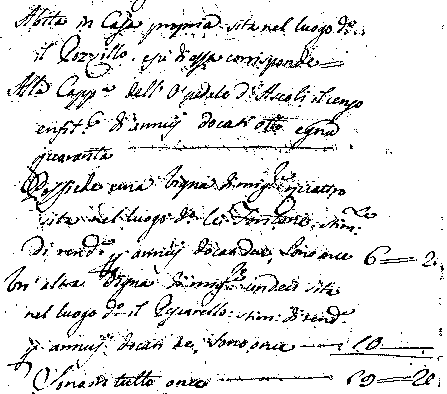 Abita in Casa propria sita nel luogo d.o
il Pozzillo, e di essa corrisponde
Alla Capp.a dell'Ospedale d'Ascoli il cenzo
enfit.o di annui docati otto e grana
quaranta
Possiede una vigna di migl.a quattro
sita nel luogo d.o le Fontane, stim.
di rend.a annui docati due, sono once 6 — 20
Un'altra vigna di migl.a undeci sita
nel luogo d.o il stim. di rend.a
p annui docati tre, sono once — 10
Sono in tutto once